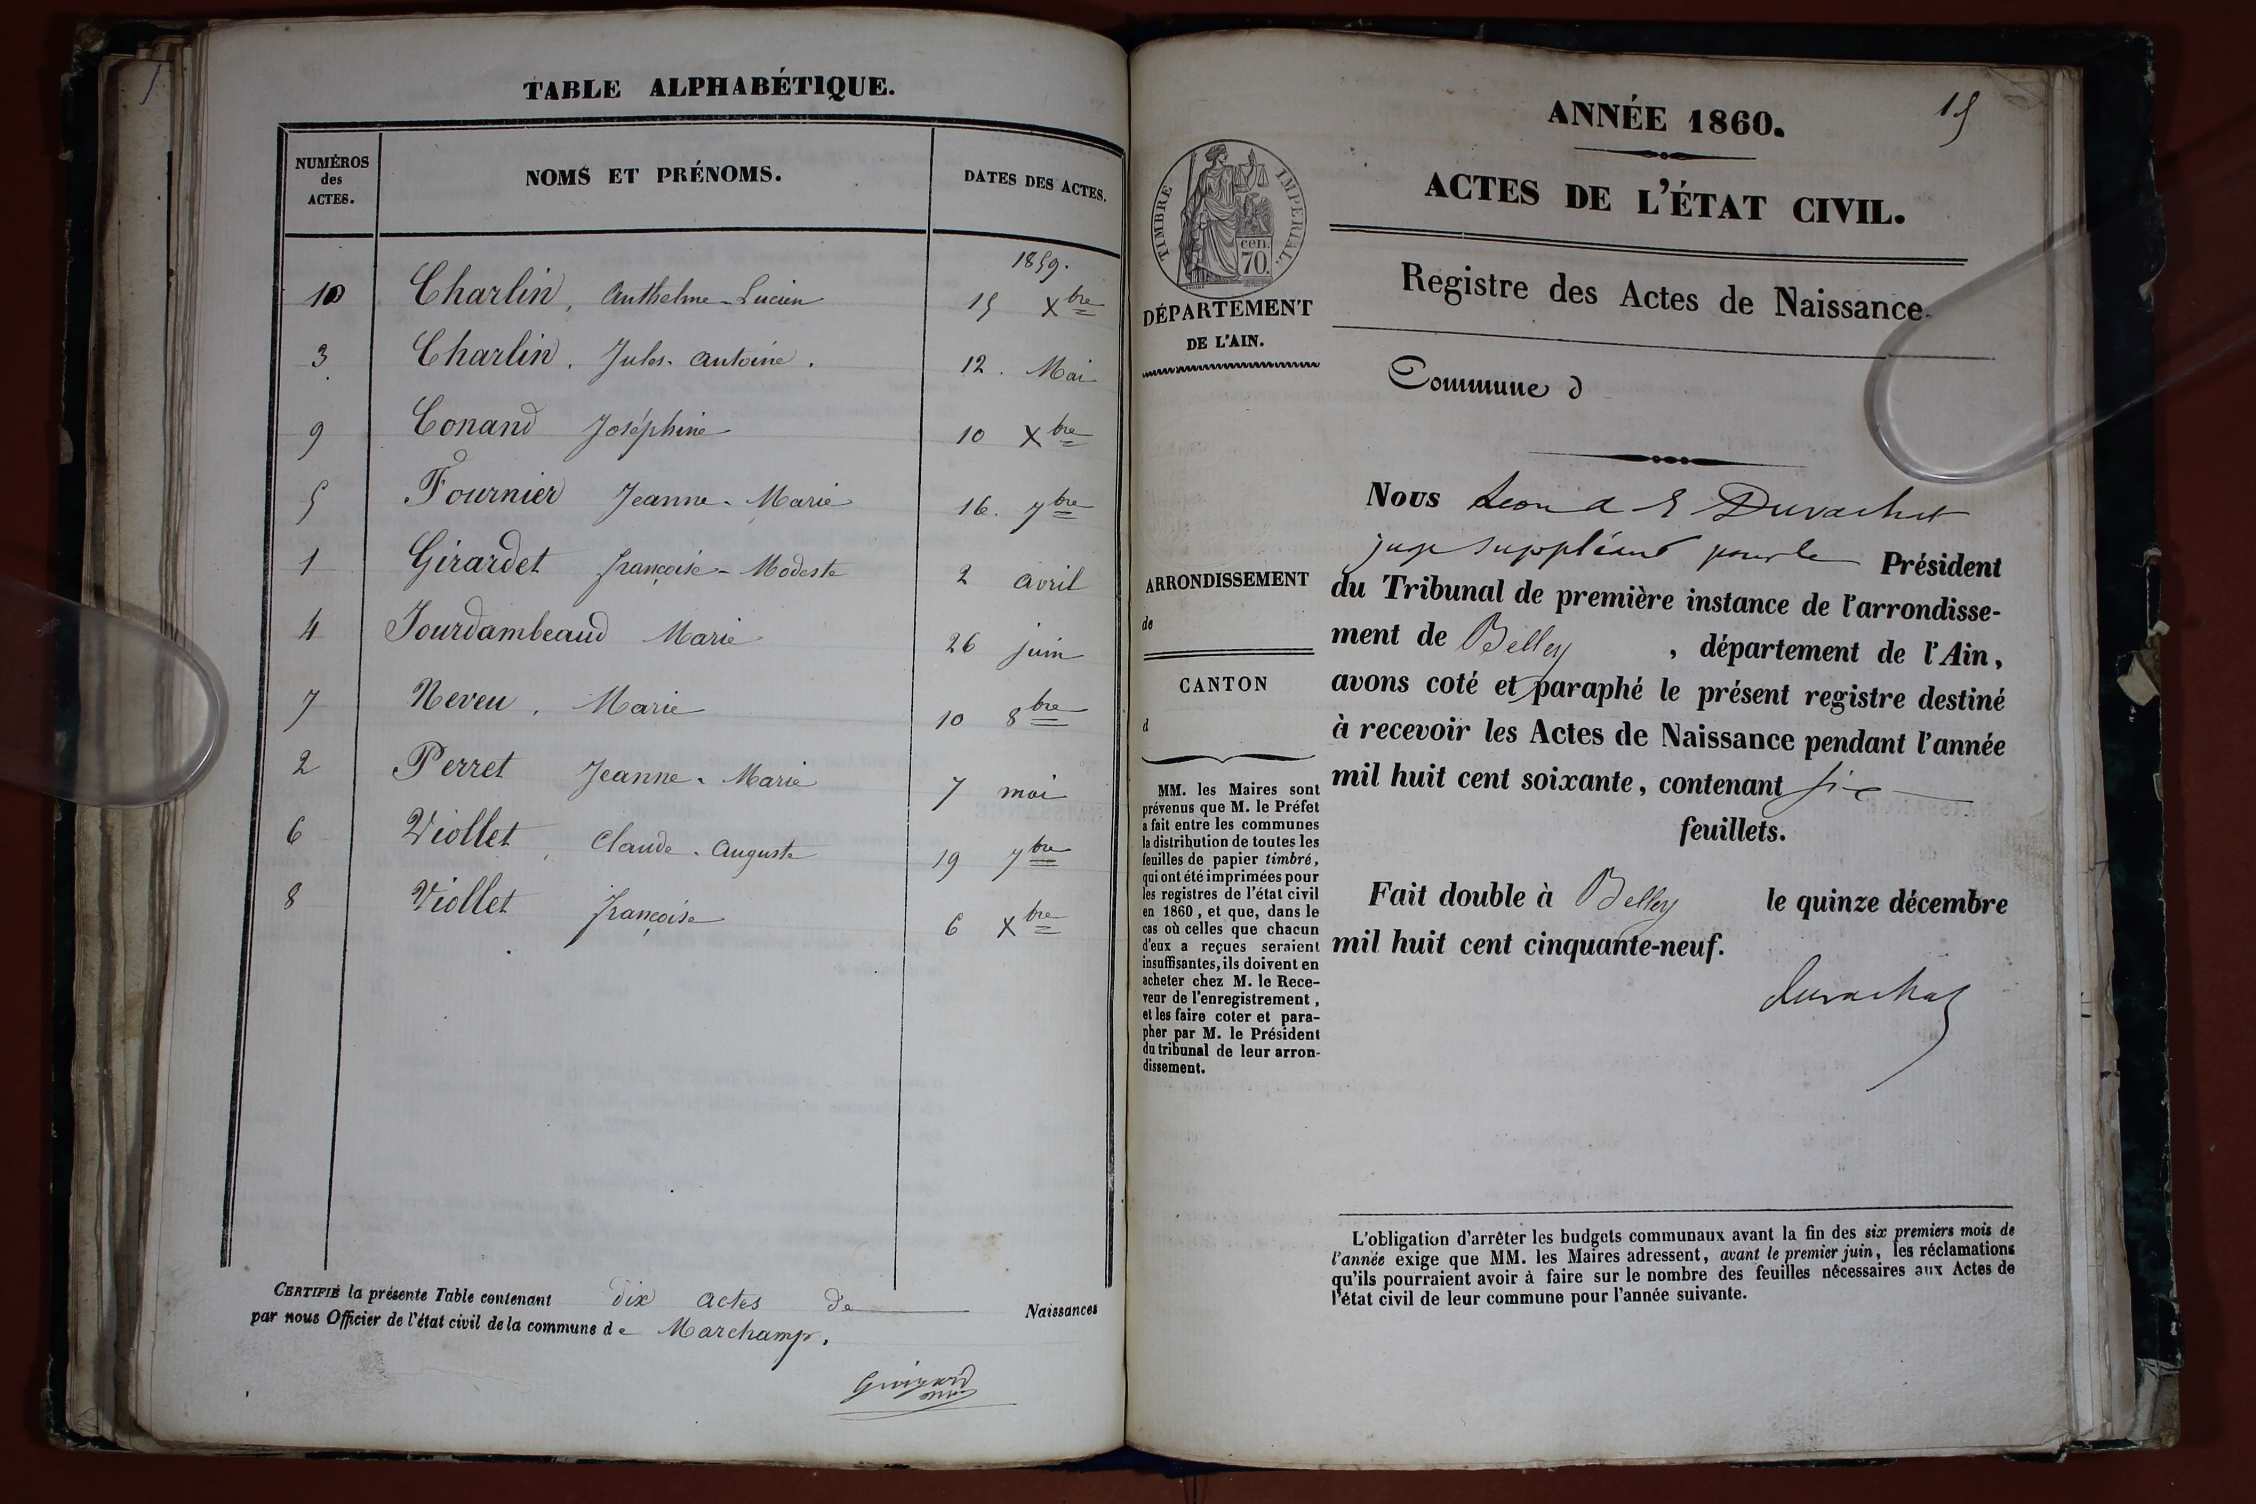 TABLE ALPHABÉTIQUE.
NUMÉROS
des
ACTES.
NOMS ET PRÉNOMS.
DATES DES ACTES.
1859.
10 Charlin, Anthelme-Lucien 15 Xbre
3 Charlin. Jules-Antoine. 12. Mai
9 Conand Joséphine 10 Xbre
5 Fournier Jeanne-Marie 16. 7bre
1 Girardet françoise-Modeste 2 avril
4 Jourdambeaud Marie 26 juin
7 Neveu. Marie 10 8bre
2 Perret Jeanne-Marie 7 mai
6 Viollet, Claude-Auguste 19 7bre
8 Viollet françoise 6 Xbre
CERTIFIÉ la présente Table contenant dix actes de Naissances
par nous Officier de l'état civil de la commune de Marchamp.
15
ANNÉE 1860.
ACTES DE L'ÉTAT CIVIL.
TIMBRE IMPERIAL.
cen.
70.
Registre des Actes de Naissance.
DÉPARTEMENT
DE L'AIN.
Commune d
ARRONDISSEMENT
de
CANTON
d
MM. les Maires sont
prévenus que M. le Préfet
a fait entre les communes
la distribution de toutes les
feuilles de papier timbré,
qui ont été imprimées pour
les registres de l'état civil
en 1860, et que, dans le
cas où celles que chacun
d'eux a reçues seraient
insuffisantes, ils doivent en
acheter chez M. le Rece-
veur de l'enregistrement,
et les faire coter et para-
pher par M. le Président
du tribunal de leur arron-
dissement.
Nous Leon Duvachat
juge suppléant pour le Président
du Tribunal de première instance de l'arrondisse-
ment de Belley, département de l'Ain,
avons coté et paraphé le présent registre destiné
à recevoir les Actes de Naissance pendant l'année
mil huit cent soixante, contenant six
feuillets.
Fait double à Belley le quinze décembre
mil huit cent cinquante-neuf.
Duvachat
L'obligation d'arrêter les budgets communaux avant la fin des six premiers mois de
l'année exige que MM. les Maires adressent, avant le premier juin, les réclamations
qu'ils pourraient avoir à faire sur le nombre des feuilles nécessaires aux Actes de
l'état civil de leur commune pour l'année suivante.